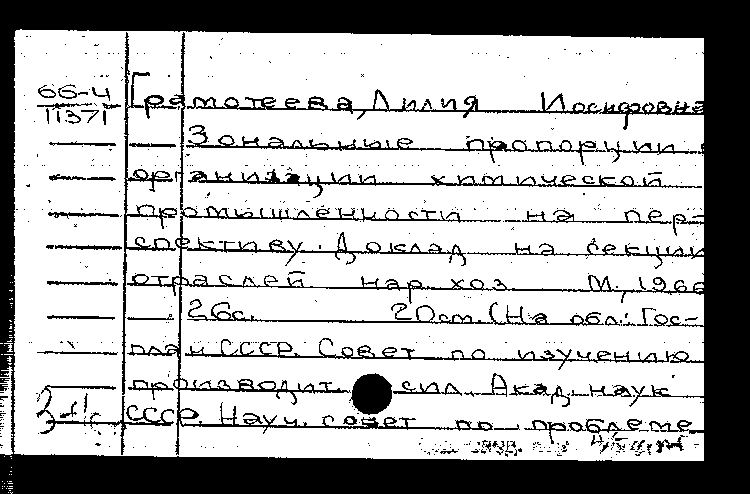 66-4
11371
Грамотеева, Лилия Иосифовна
Зональные пропорции в
организации химической
промышленности на пер-
спективу. Доклад на секции
отраслей нар. хоз. М., 1966
26с. 20см. (На обл.: Гос-
план СССР. Совет по изучению
производит. сил. Акад. наук
СССР. Науч. совет по проблеме